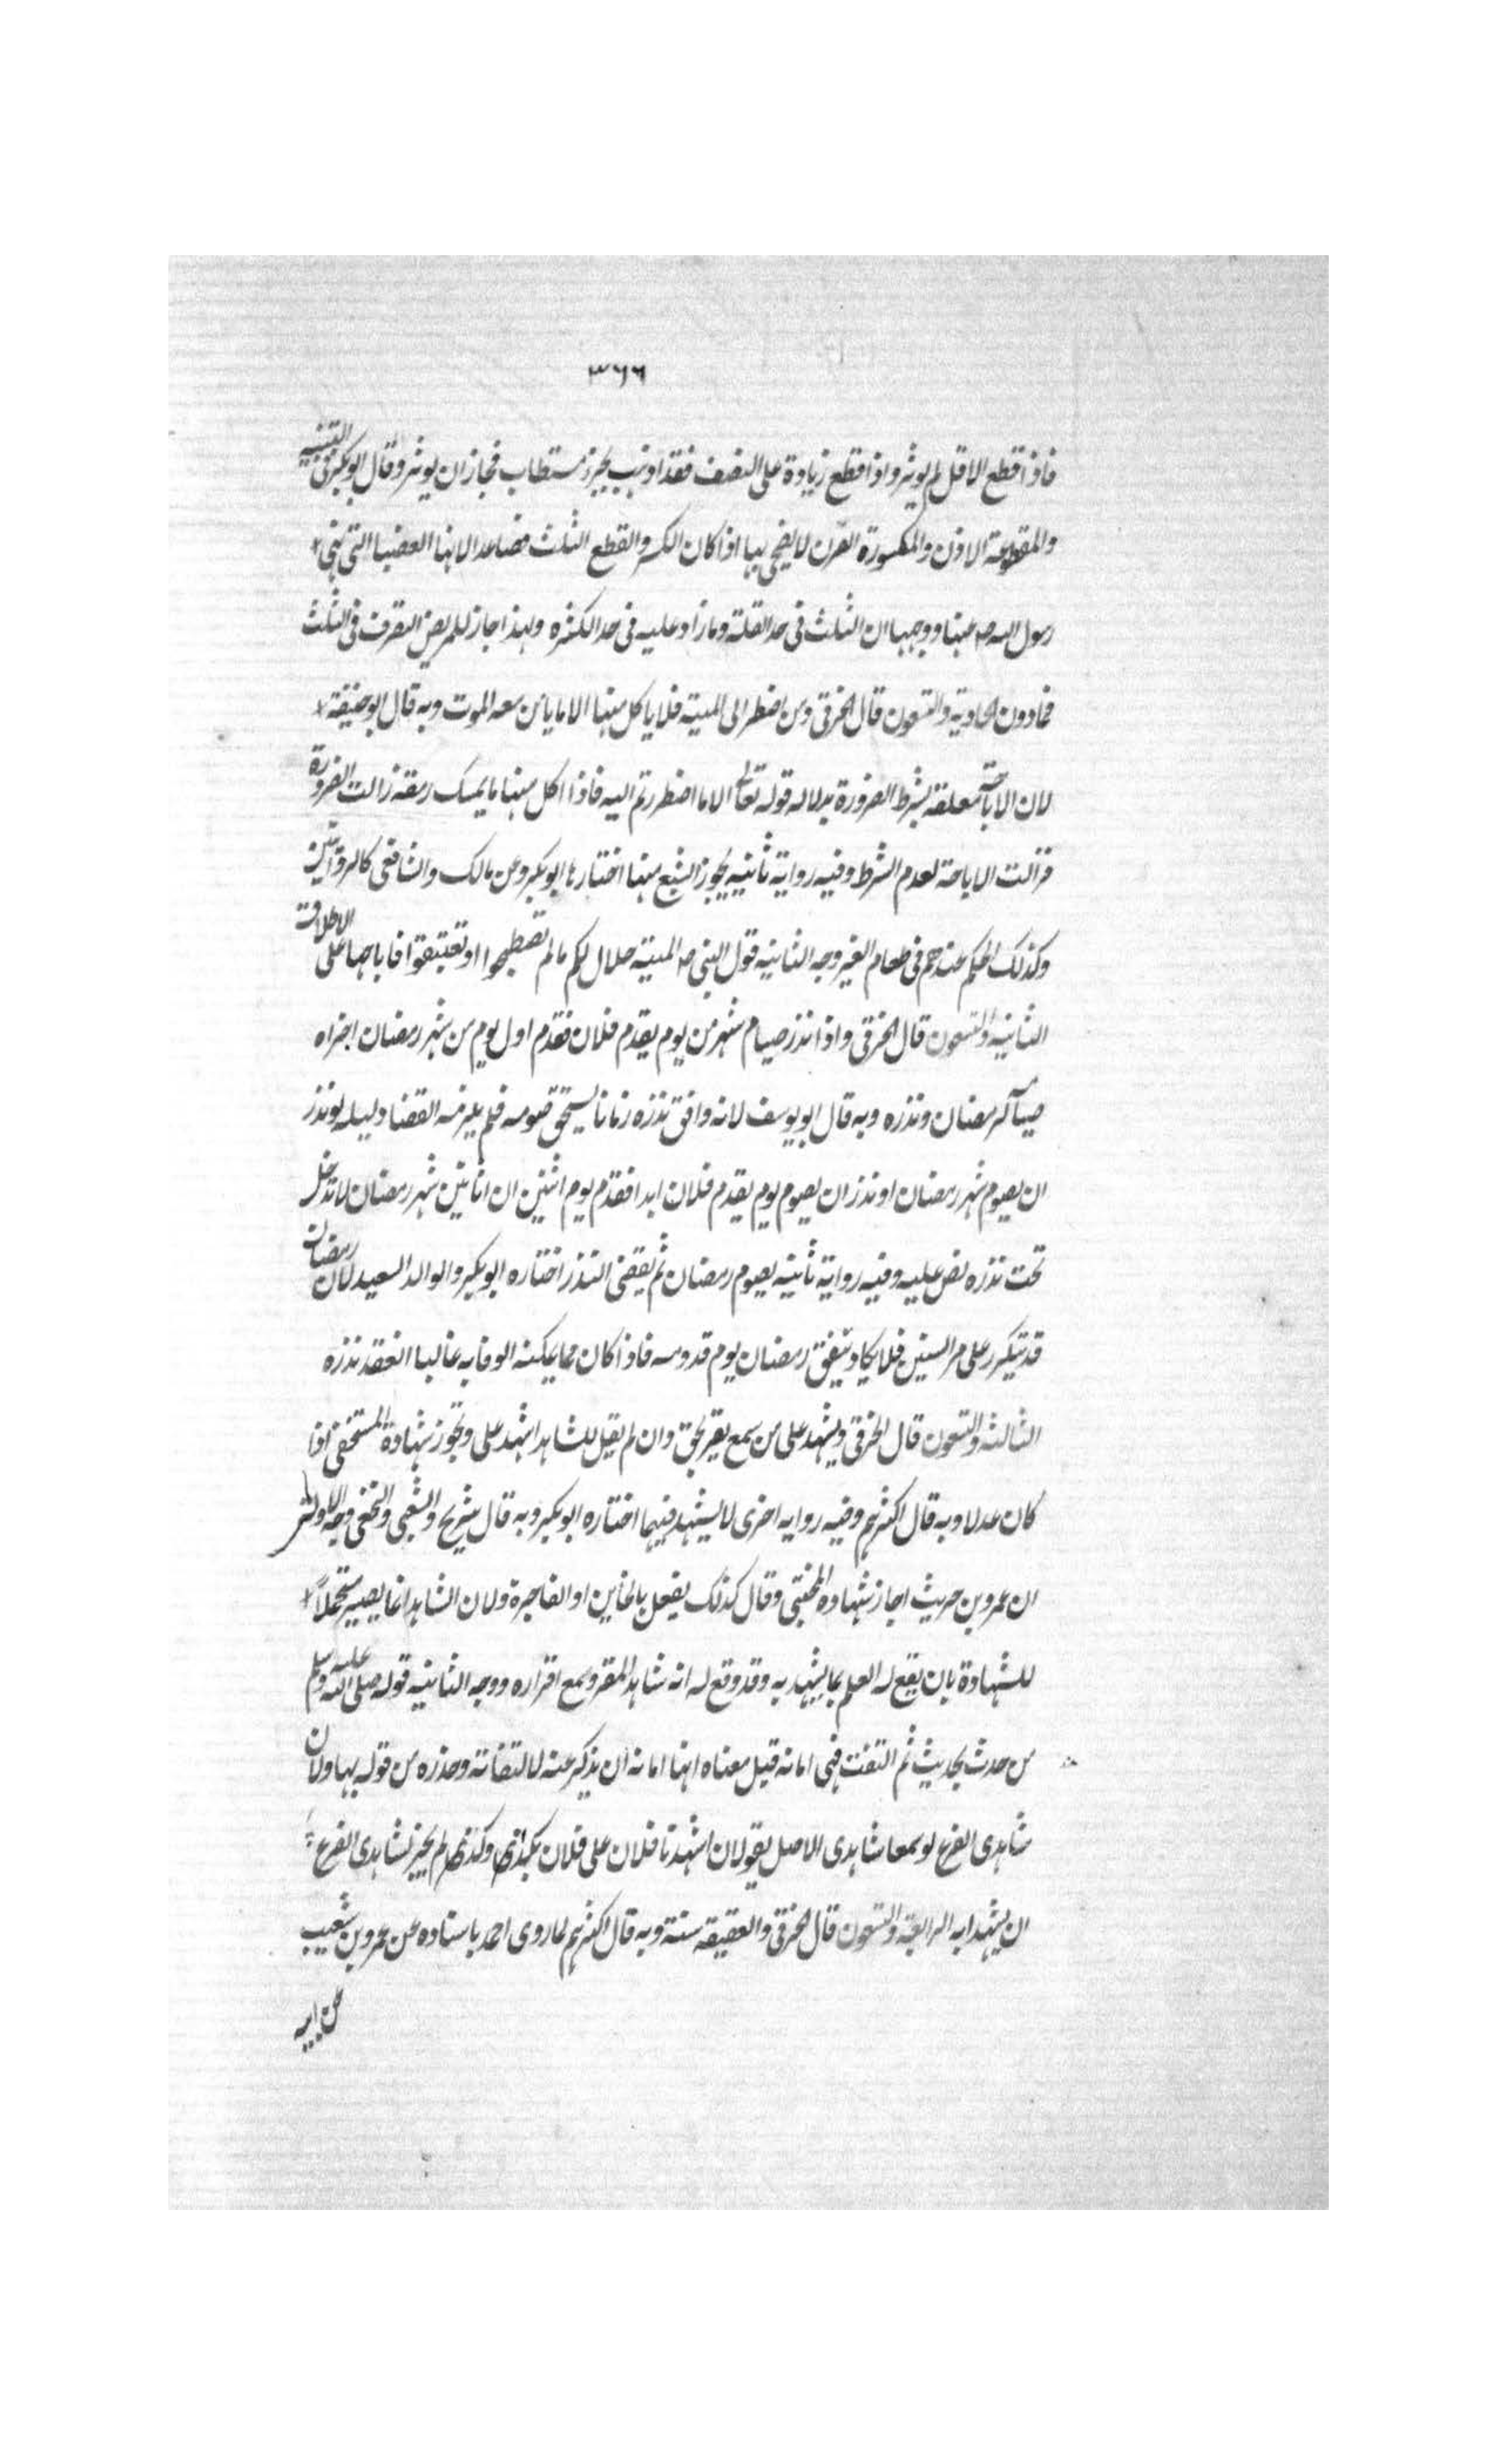 ٣٦٦
فاذا قطع الاقل لم يوثر واذا قطع زيادة على النصف فقد اذهب بجزء مستطاب فجاز ان يوثر وقال ابو بكر في التنبيه
والمقطوعة الاذن والمكسورة القرن لا يضحى بها اذا كان الكسر والقطع الثلث فصاعدا لانها العضبا التي نهى
رسول الله ص عنها ووجهها ان الثلث في حد القلة وما زاد عليه في حد الكثرة ولهذا جاز للمريض التصرف في الثلث
فما دون الحادية والتسعون قال الخرقي ومن اضطر الى الميتة فلا ياكل منها الا ما يامن معه الموت وبه قال ابو حنيفة
لان الاباحة معلقة بشرط الضرورة بدلاله قوله تعالى الا ما اضطررتم اليه فاذا اكل منها ما يمسك رمقه زالت الضرورة
فزالت الاباحة لعدم الشرط وفيه رواية ثانيه يجوز الشبع منها اختارها ابو بكر وعن مالك والشافعي كالروايتين
وكذلك الحكم عندهم في طعام الغير وجه الثانيه قول النبي ص الميتة حلال لكم ما لم تصطبحوا او تغتبقوا فاباحها على الاطلاق
الثانيه والتسعون قال الخرقي واذا نذر صيام شهر من يوم يقدم فلان فقدم اول يوم من شهر رمضان اجزاه
صيامه لرمضان ونذره وبه قال ابو يوسف لانه وافق نذره زمانا يستحق صومه فلم يلزمه القضا دليله لو نذر
ان يصوم شهر رمضان او نذر ان يصوم يوم يقدم فلان ابدا فقدم يوم اثنين ان اثانين شهر رمضان لا تدخل
تحت نذره نص عليه وفيه رواية ثانيه يصوم رمضان ثم يقضى النذر اختاره ابو بكر والوالد السعيد لان رمضان
قد تيكرر على مر السنين فلا يكاد يتفق رمضان يوم قدومه فاذا كان مما يمكنه الوفا به غالبا انعقد نذره
الثالثه والتسعون قال الخرقي ويشهد على من سمع يقر بحق وان لم يقل للشاهد اشهد على وتجوز شهادة المستخفي اذا
كان عدلا وبه قال اكثرهم وفيه روايه اخرى لا يشهد فيهما اختاره ابو بكر وبه قال شريح والشعبي والنخعي وجه الاوله
ان عمرو بن حريث اجاز شهادة المختبي وقال كذلك يفعل بالخاين او الفاجرة ولان الشاهد انما يصير متحملاً
للشهادة بان يقع له العلم بما يشهد به وقد وقع له انه شاهد المقر وسمع اقراره ووجه الثانيه قوله صلى الله عليه وسلم
من حدث بحديث ثم التفت فهى امانه قيل معناه انها امانه ان يذكر عنه لالتفاته وحذره من قوله بها ولان
شاهدى الفرع لو سمعا شاهدى الاصل يقولان اشهدنا فلان على فلان بكذا وكذا لم يجز لشاهدى الفرع
ان يشهدا به الرابعة والتسعون قال الخرقي والعقيقه سنة وبه قال اكثرهم لما روى احمد باسناده عن عمرو بن شعيب
عن ابيه